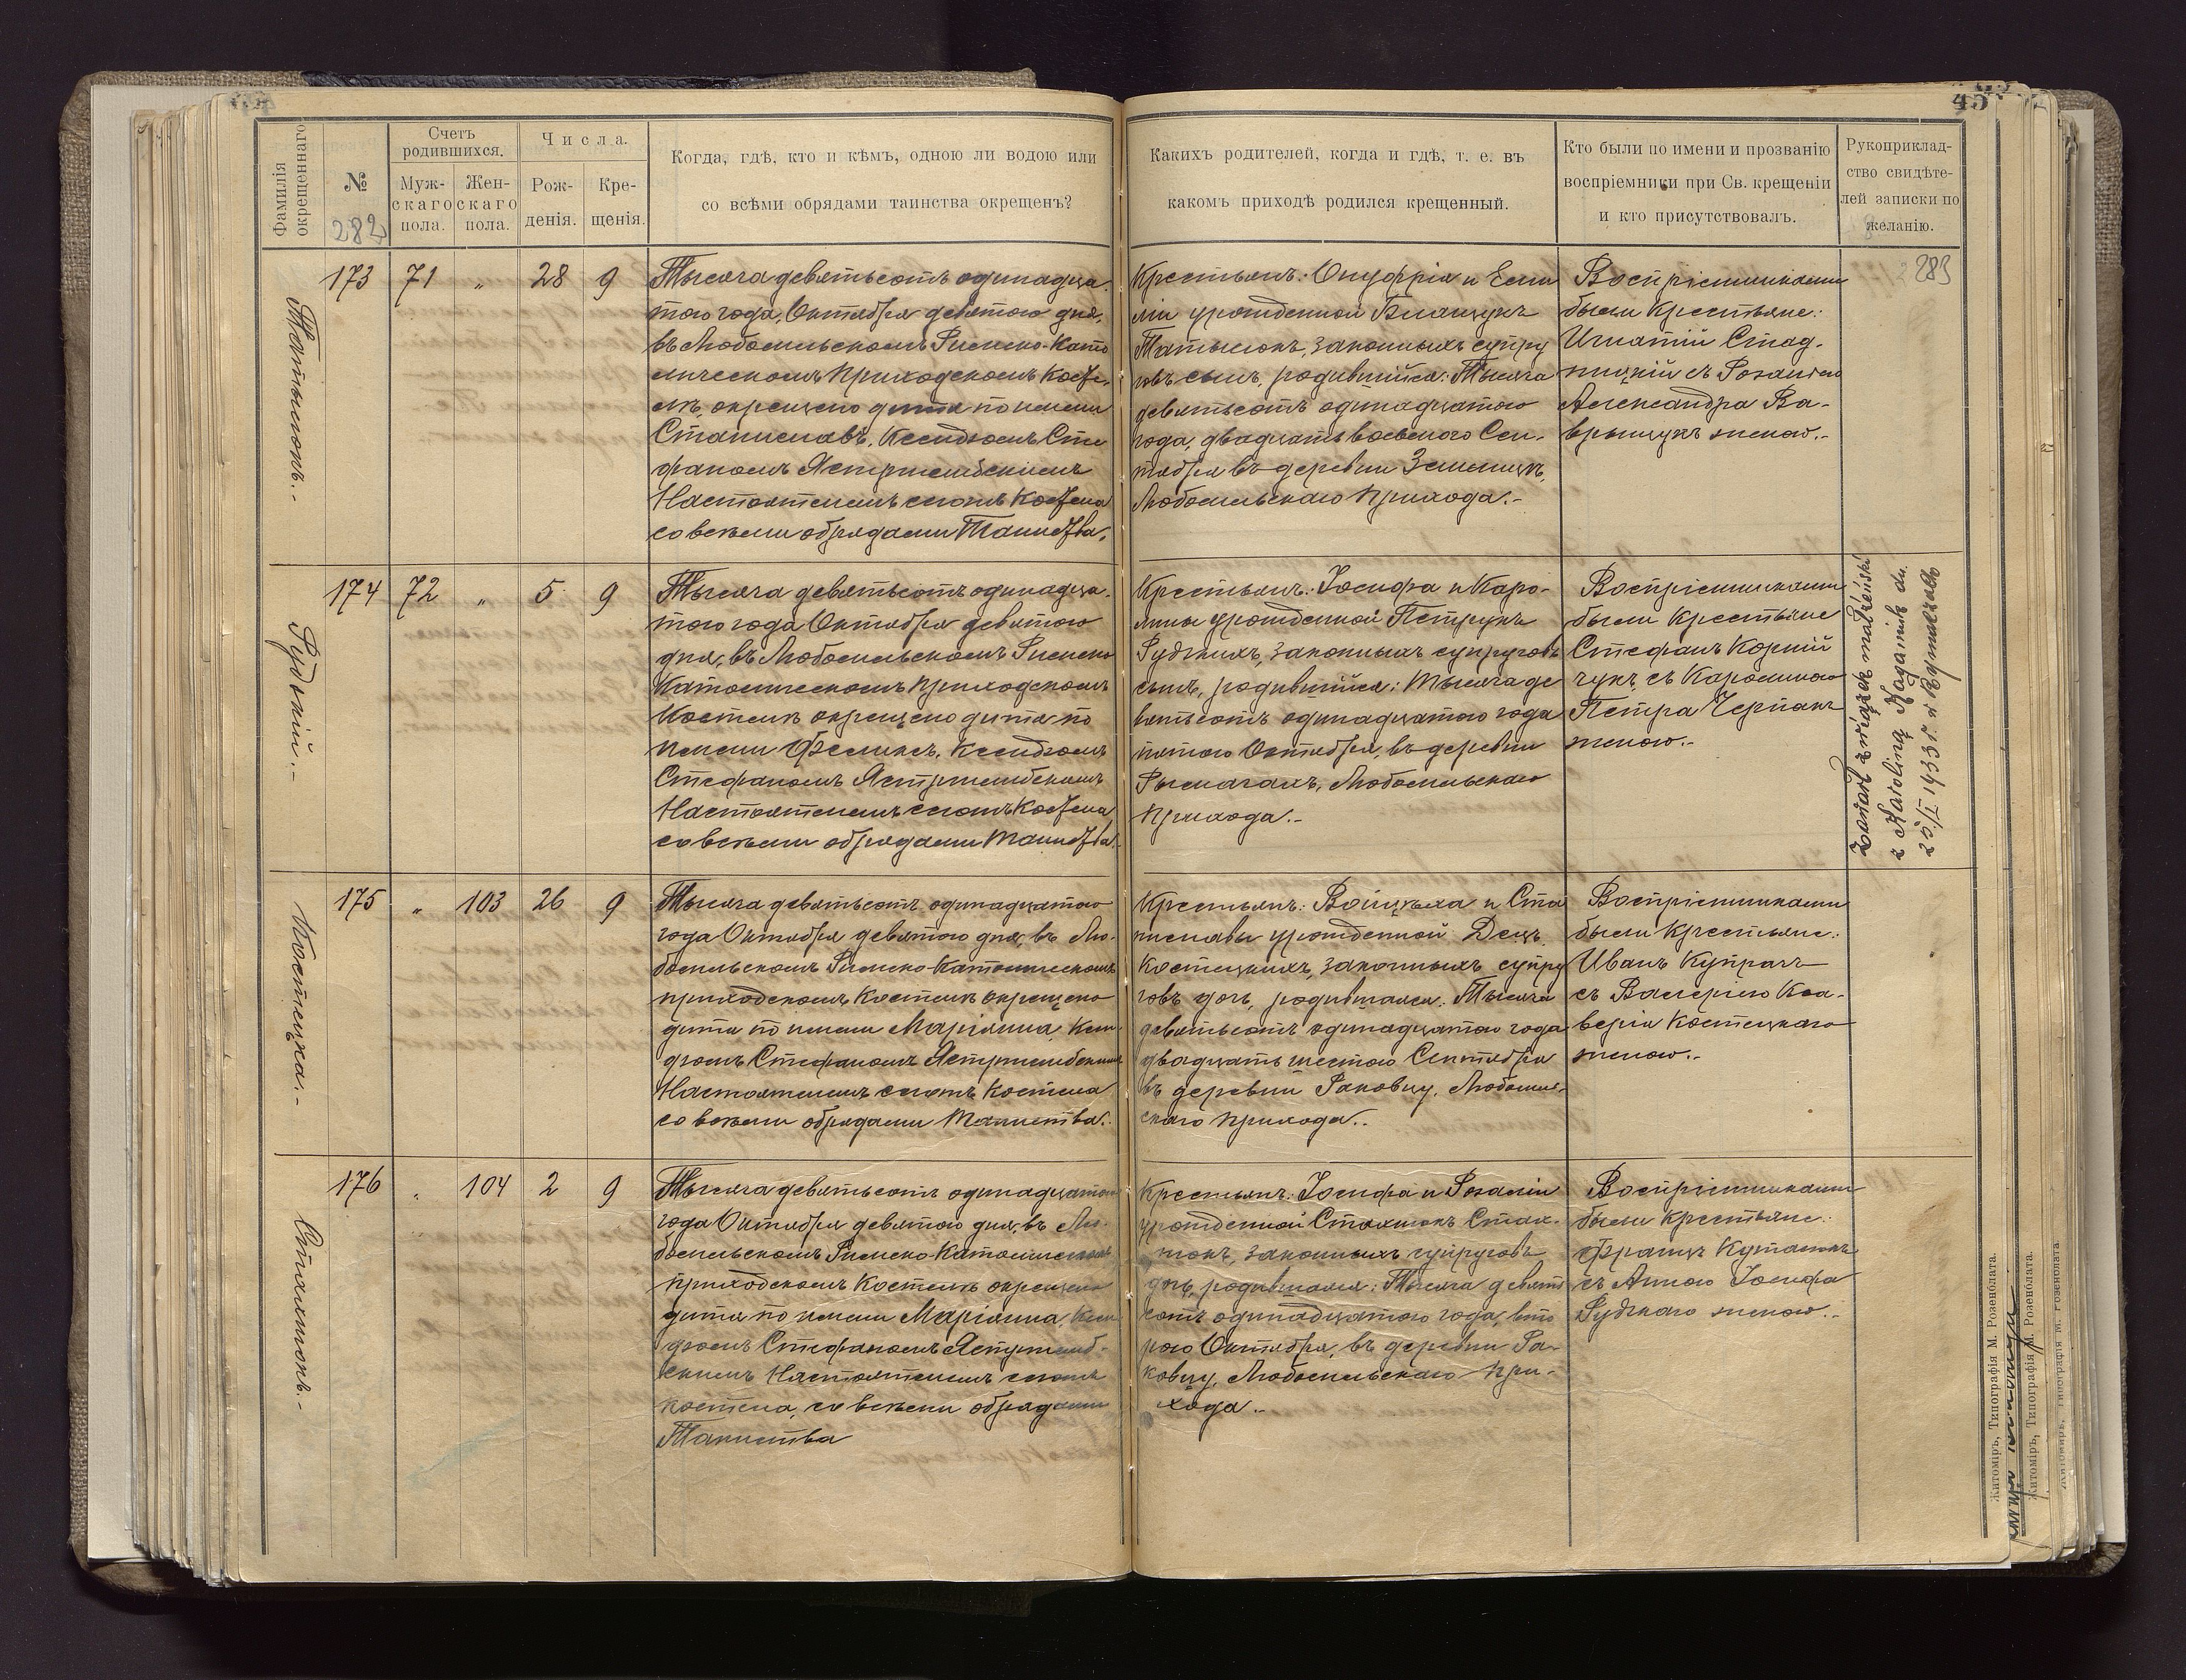 45
Фамилія окрещеннаго
№
282
Счетъ родившихся.
Мужскаго пола.
Женскаго пола.
Числа.
Рожденія.
Крещенія.
Когда, гдѣ, кто и кѣмъ, одною ли водою или
со всѣми обрядами таинства окрещенъ?
Какихъ родителей, когда и гдѣ, т. е. въ
какомъ приходѣ родился крещенный.
Кто были по имени и прозванію
воспріемники при Св. крещеніи
и кто присутствовалъ.
Рукоприклад-
ство свидѣте-
лей записки по
желанію.
283
173 71 " 28 9
Тысяча девятьсотъ одинадца-
того года, Октября девятого дня,
въ Любомльскомъ Римско-Като
лическомъ Приходскомъ Косте-
лѣ, окрещено дитя по имени
Станиславъ, Ксендзомъ Сте
фаномъ Ястржембскимъ
Настоятелемъ сего Костела
со всѣми обрядами Таинства.
Крестьянъ: Онуфрія и
урожденной
законныхъ супру
говъ сынъ, родившійся: Тысяча
девятьсотъ одинадцатого
года, двадцать восьмого Сен-
тября въ деревни
Любомльскаго Прихода.-
Воспріемниками
были Крестьяне:
Игнатій Стад-
ницкій съ Розаліею
Александра Ва-
врыщукъ женою.-
174 72 " 5 9
Рудзкій.-
Тысяча девятьсотъ одинадца-
того года Октября девятого
дня, въ Любомльскомъ Римско
Католическомъ Приходскомъ
Костелѣ окрещено дитя по
имени Феликсъ, Ксендзомъ
Стефаномъ Ястржембскимъ
Настоятелемъ сего Костела
со всѣми обрядами Таинства.-
Крестьянъ: Іосифа и Каро-
лины урожденной Петрукъ
Рудзкихъ, законныхъ супруговъ
сынъ, родившійся: Тысяча де
вятьсотъ одинадцатого года
пятого Октября, въ деревни
Рымачахъ, Любомльскаго
Прихода.-
Воспріемниками
были Крестьяне
Стефанъ Корній
чукъ, съ Каролиною
Петра Черпакъ
женою.-
Zawarł związek małżeński
z Karoliną
25/I 1933 r. w Rymaczach
175 " 103 26 9
Костецка.-
Тысяча девятьсотъ одинадцатого
года Октября девятого дня, въ Лю-
бомльскомъ Римско-Католическомъ
приходскомъ Костелѣ окрещено
дитя по имени Маріянна, Ксен
дзомъ Стефаномъ Ястржембскимъ
Настоятелемъ сего Костела
со всѣми обрядами Таинства.-
Крестьянъ: Войцѣха и Ста
ниславы урожденной Децъ
Костецкихъ, законныхъ супру
говъ дочь, родившаяся: Тысяча
девятьсотъ одинадцатого года
двадцать шестого Сентября
въ деревни Раковцу, Любомль-
скаго Прихода.-
Воспріемниками
были Крестьяне:
Иванъ Купрачъ
съ Валеріею Кса-
верія Костецкаго
женою.-
176 " 104 2 9
Стахнюкъ.-
Тысяча девятьсотъ одинадцатого
года Октября девятого дня, въ Лю-
бомльскомъ Римско-Католическомъ
приходскомъ Костелѣ окрещено
дитя по имени Маріянна, Ксен
дзомъ Стефаномъ Ястржемб-
скимъ Настоятелемъ сего
Костела, со всѣми обрядами
Таинства
Крестьянъ: Іосифа и Розаліи
урожденной Стахнюкъ Стах-
нюкъ, законныхъ супруговъ
дочь, родившаяся: Тысяча девять
сотъ одинадцатого года, вто
рого Октября, въ деревни Ра-
ковцу, Любомльскаго При-
хода.-
Воспріемниками
были Крестьяне:
Францъ
съ Анною Іосифа
Рудзкаго женою.-
Житоміръ, Типографія М. Розенолата.
Житоміръ, Типографія М. Розенолата.